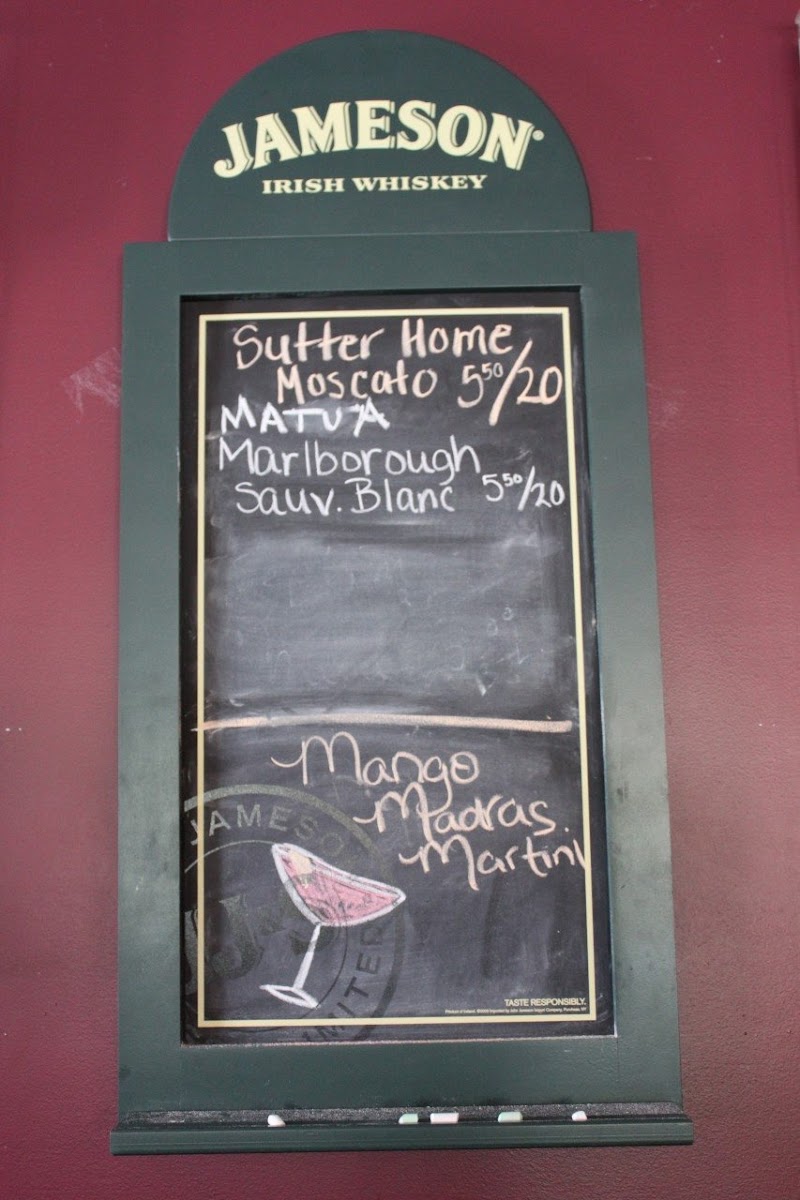 JAMESON®
IRISH WHISKEY
Sutter Home
Moscato 5⁵⁰/20
MATUA
Marlborough
Sauv. Blanc 5⁵⁰/20
Mango
Madras
Martini
JAMESON
LIMITED
TASTE RESPONSIBLY.